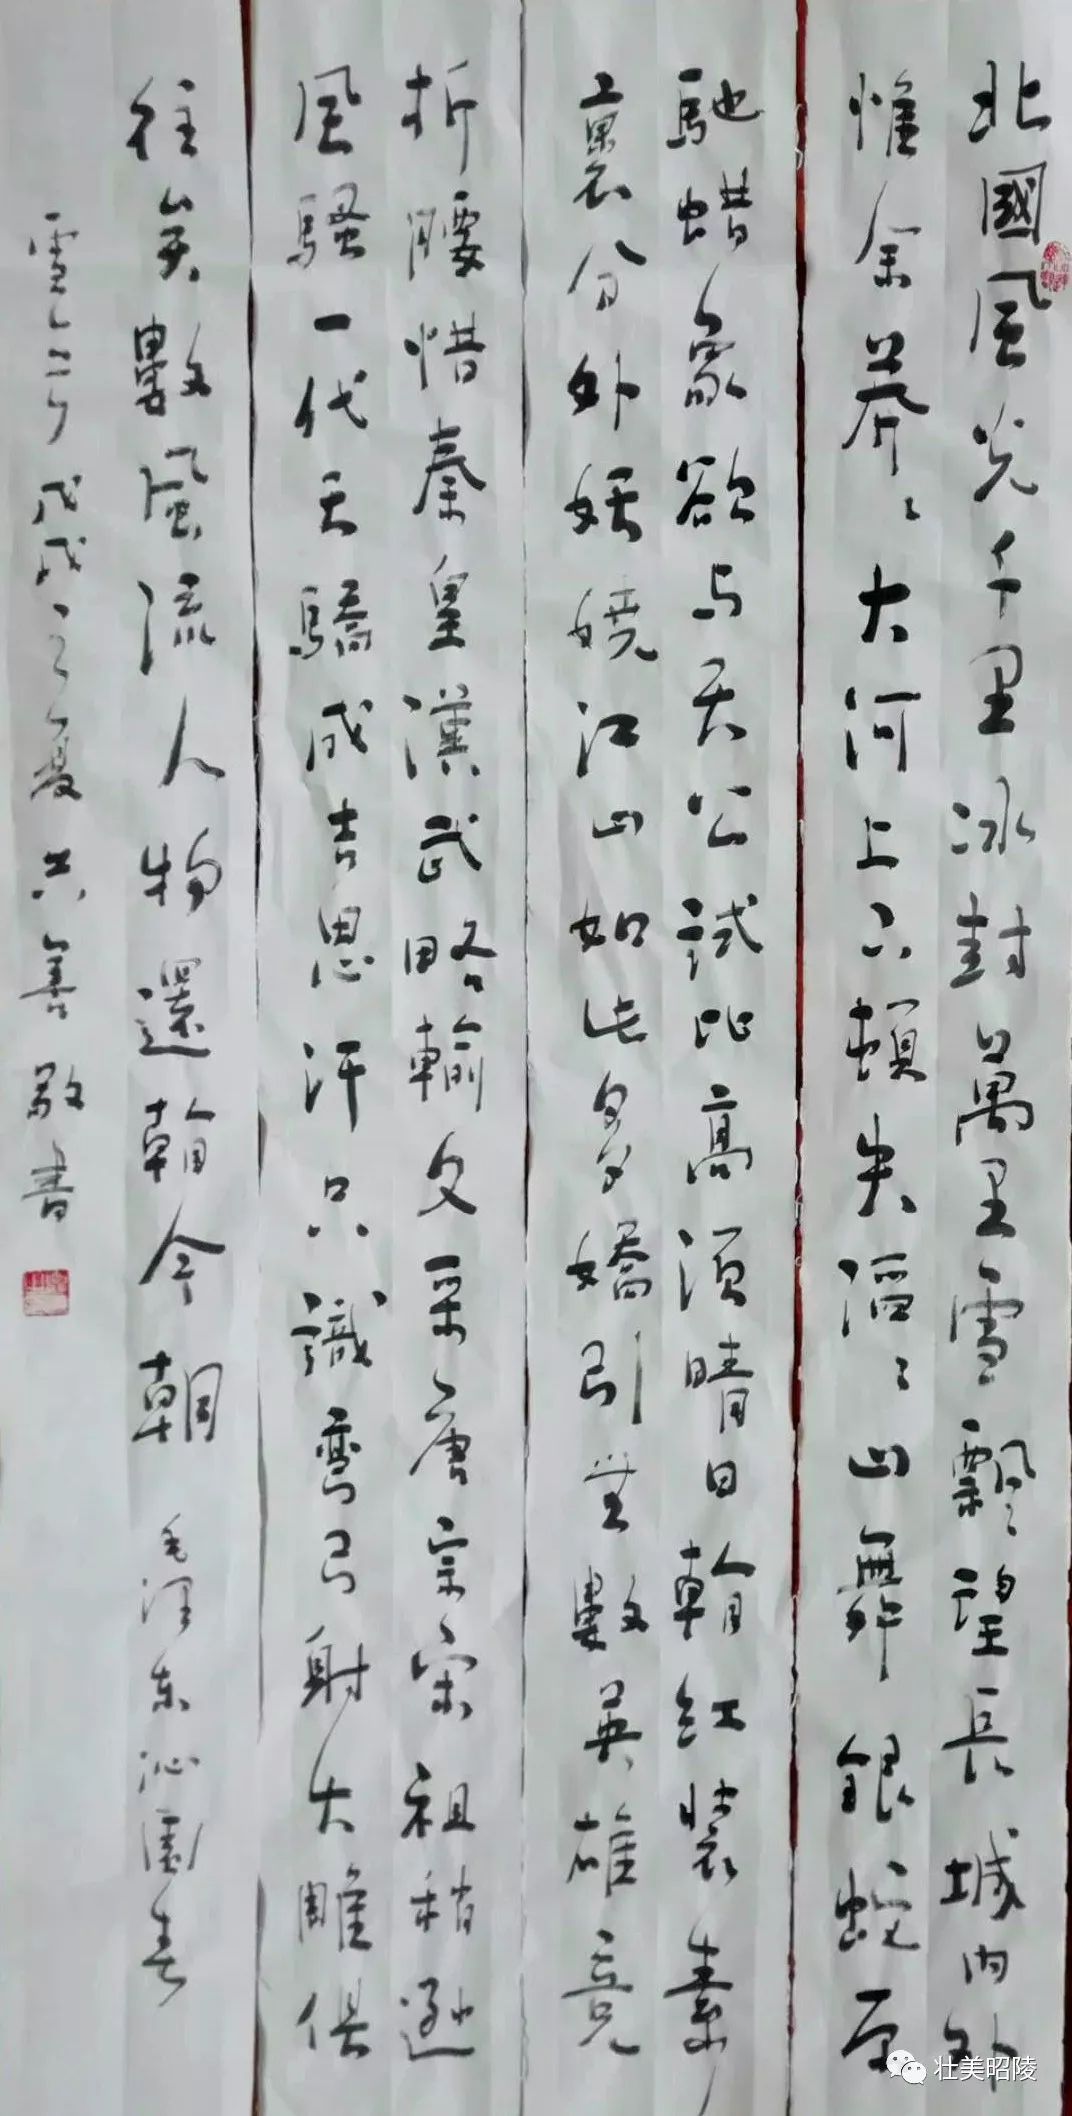 北國風光千里冰封萬里雪飄望長城內外
惟余莽〻大河上下頓失滔〻山舞銀蛇原
馳蜡象欲与天公試比高須晴日看紅裝素
裹分外妖嬈江山如此多嬌引無數英雄竞
折腰惜秦皇漢武略輸文采唐宗宋祖稍遜
風騷一代天驕成吉思汗只識彎弓射大雕俱
往矣數風流人物還看今朝 毛澤东沁園春
雪 戊戌之夏 善敬書
壮美昭陵